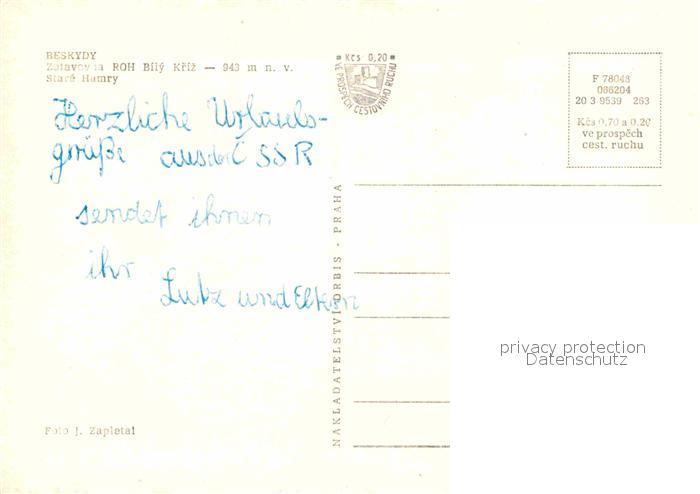 BESKYDY
Zotavovna ROH Bílý Kříž — 943 m n. v.
Staré Hamry
Herzliche Urlaubs-
grüße aus der ČSSR
sendet ihnen
ihr
Lutz und Eltern
Foto J. Zapletal
NAKLADATELSTVÍ ORBIS - PRAHA
Kčs 0,20
VE PROSPĚCH CESTOVNÍHO RUCHU
F 78048
086204
20 3 9539 263
Kčs 0,70 a 0.20
ve prospěch
cest. ruchu
privacy protection
Datenschutz